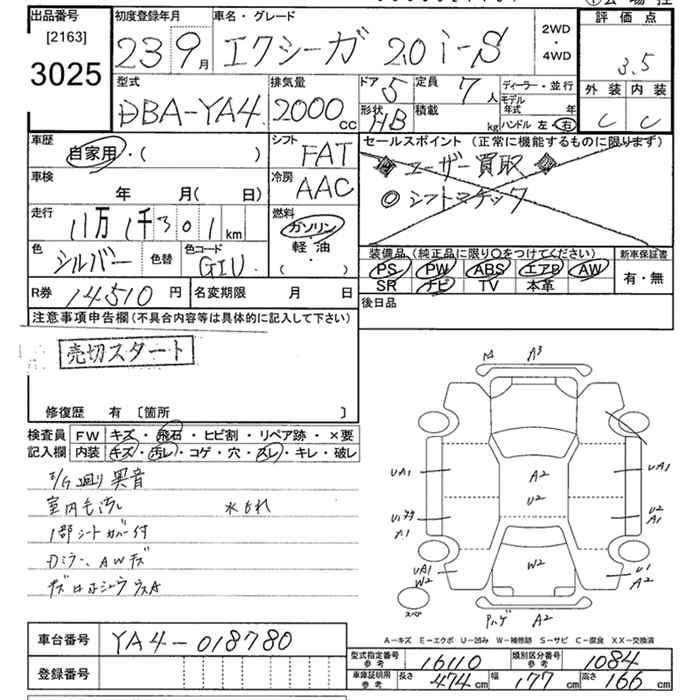 出品番号
[2163]
3025
初度登録年月
23 9月
車名・グレード
エクシーガ 2.0 i-S
2WD
・
4WD
評価点
3.5
外装 内装
C C
型式
DBA-YA4
排気量
2000cc
ドア 5
形状 HB
定員 7人
積載 kg
ディーラー・並行
モデル年式 年
ハンドル 左・右
車歴
自家用・( )
シフト
FAT
車検
年 月( 日)
冷房
AAC
走行
11万1千301km
燃料
ガソリン・
軽油・
( )
色
シルバー
色替
色コード
G1U
R券 14510円
名変期限 月 日
セールスポイント (正常に機能するものに限ります)
ユーザー買取
◎ シフトマチック
装備品 (純正品に限り○をつけてください)
PS PW ABS エアB AW
SR ナビ TV 本革
新車保証書
有・無
後日品
注意事項申告欄(不具合内容等は具体的に記入して下さい)
売切スタート
修復歴 有 [箇所 ]
検査員
記入欄
FW キズ・飛石・ヒビ割・リペア跡・×要
内装 キズ・汚レ・コゲ・穴・スレ・キレ・破レ
E/G廻り異音
室内毛汚レ 水もれ
1部シートカバー付
Dミラー、AWキズ
A3
UA1
UA1
A2
U2
U2
A1
A1
UA1
W2
W2
U1
A2
スペア
ハゲ
A2
A-キズ E-エクボ U-凹み W-補修跡 S-サビ C-腐食 XX-交換済
車台番号
YA4-018780
登録番号
型式指定番号 参考
16110
類別区分番号 参考
1084
車庫証明用 参考
長さ 474cm
幅 177cm
高さ 166cm